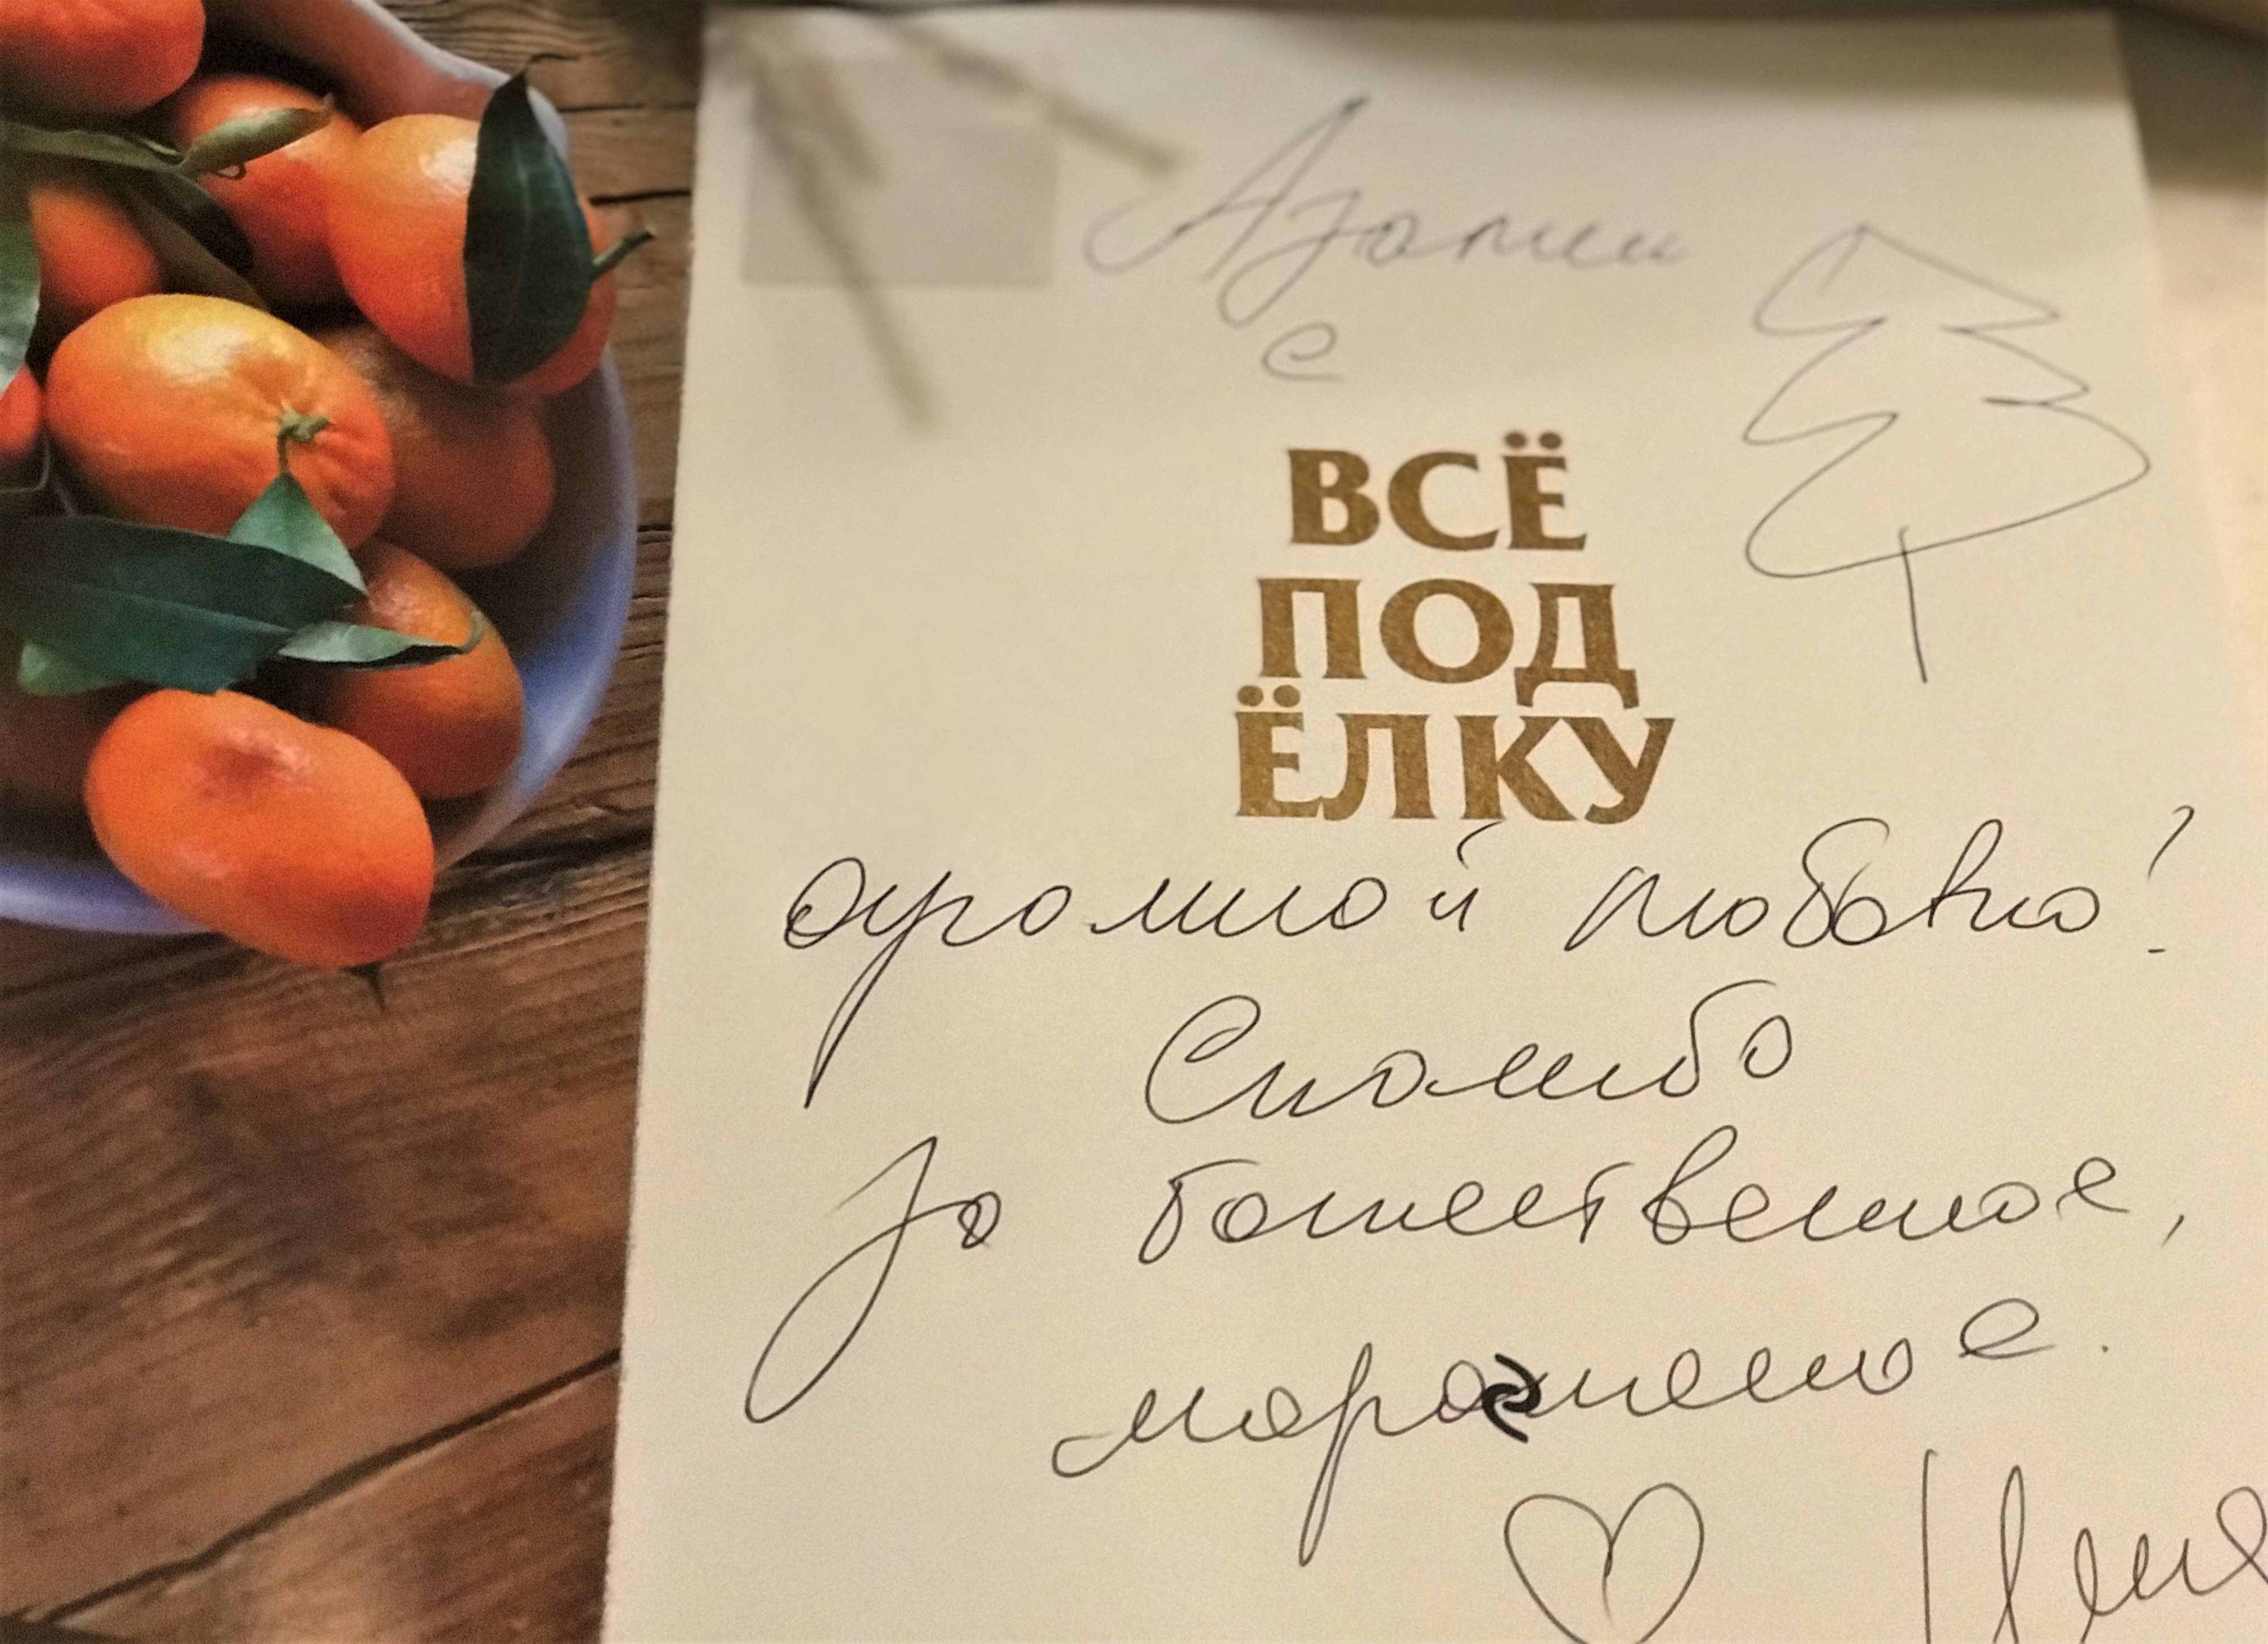 с
ВСЁ
ПОД
ЁЛКУ
огромной любовью!
Спасибо
за божественное,
мороженое.